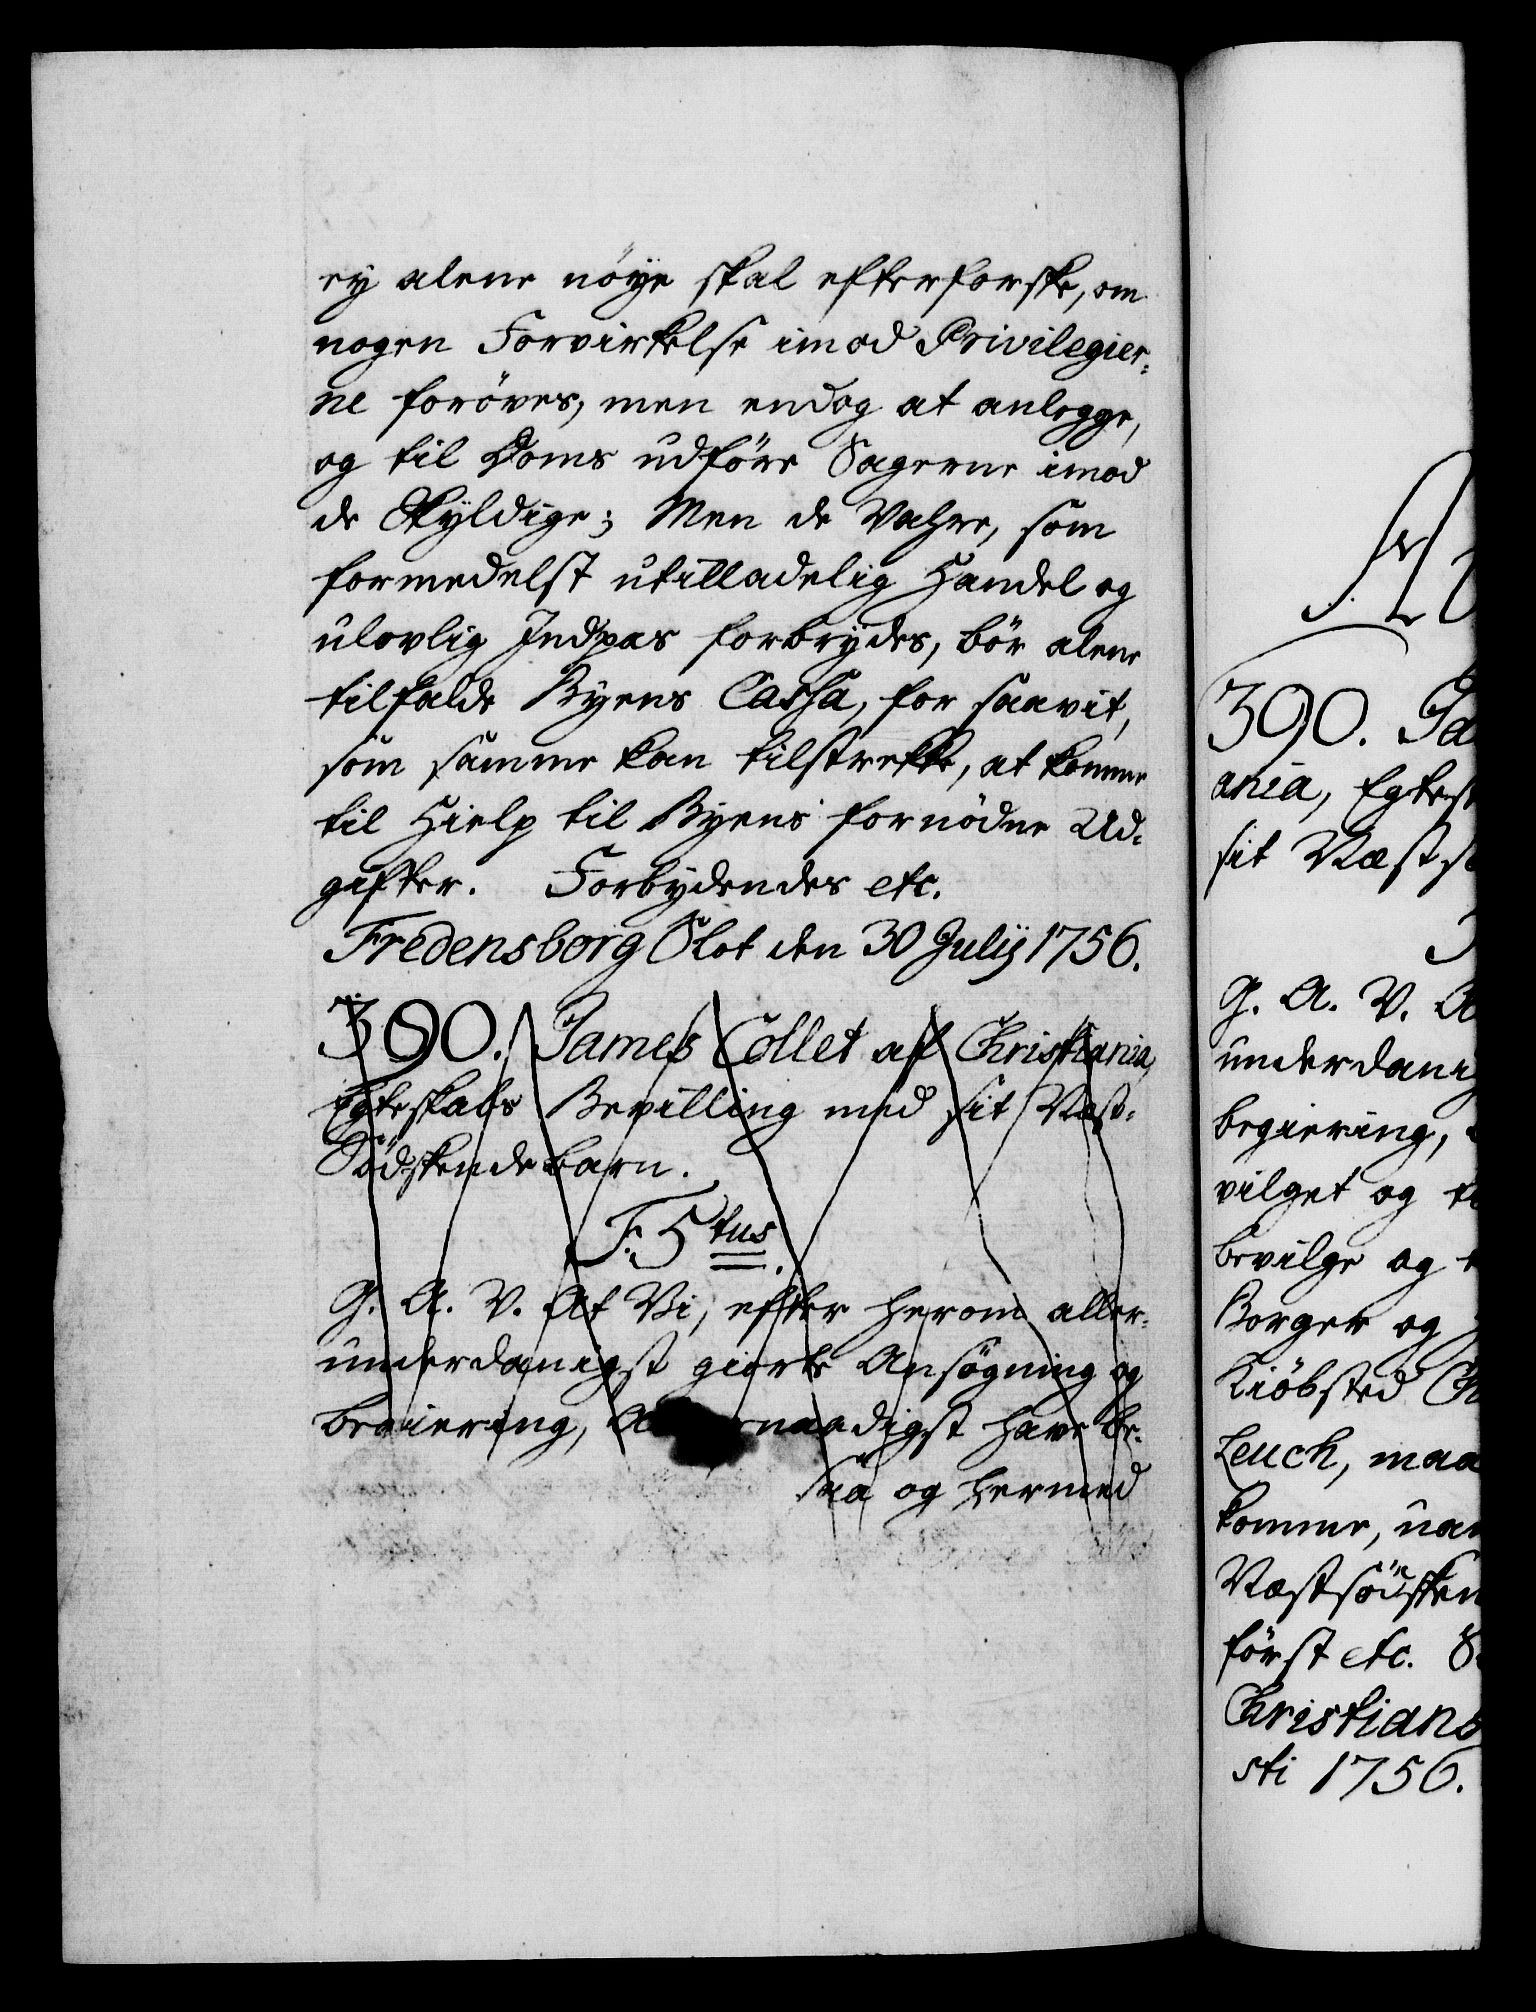 ey alene nöye skal efterforske, om
nogen Forvirkelse imod Privilegier:
ne foröves, men endog at anlegge,
og til Doms udföre Sagerne imod
de Skyldige; Men de Vahre, som
formedelst utilladelig Handel og
ulovlig Indpas forbrydes, bör alene
tilfalde Byens Cassa, for saavit,
som samme kan tilstrekke, at komme
til Hielp til Byens fornödne Ud:
gifter. Forbydendes etc.
Fredensborg Slot den 30 Julij 1756.
390. James Collet af Christiania,
Egteskabs Bevilling med sit Næst:
Södskendebarn.
F. 5tus.
G. A. V. At Vi, efter herom aller:
underdanigst giorte Ansögning og
begiering, have be:
saa og hermed
390. Ja
ania, Egtesk
sit Næsts
G. A. V. A
underdanig
begiering,
vilget og
bevilge og
Borger og
Kiöbsted Ch
Leuch, maa
komme, uan
Næstsödsken
först etc.
Christiansb
sti 1756.